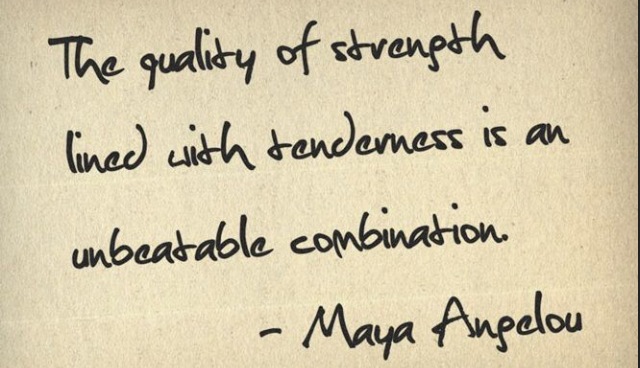 The quality of strength
lined with tenderness is an
unbeatable combination.
- Maya Angelou